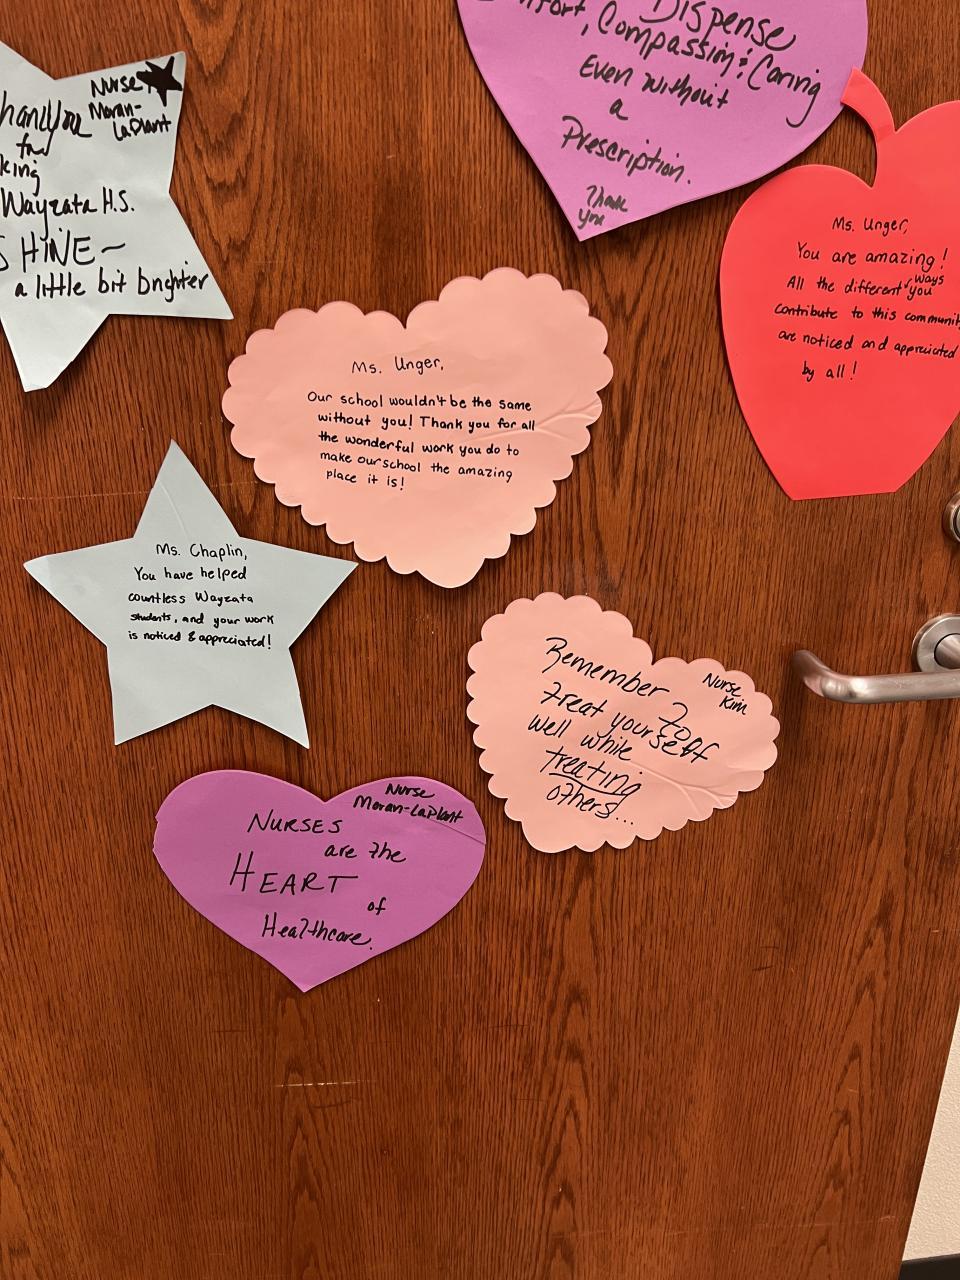 Nurse
Moran-
LaPlant
Thank you
for
Wayzata H.S.
SHINE ~
a little bit brighter
Dispense
Comfort, Compassion & Caring
Even without
a
Prescription.
Thank
you
Ms. Unger,
You are amazing!
All the different ways you
contribute to this community
are noticed and appreciated
by all!
Ms. Unger,
Our school wouldn't be the same
without you! Thank you for all
the wonderful work you do to
make our school the amazing
place it is!
Ms. Chaplin,
You have helped
countless Wayzata
students, and your work
is noticed & appreciated!
Nurse
Kim
Remember to
treat yourself
well while
treating
others...
Nurse
Moran-LaPlant
NURSES
are the
HEART
of
Healthcare.